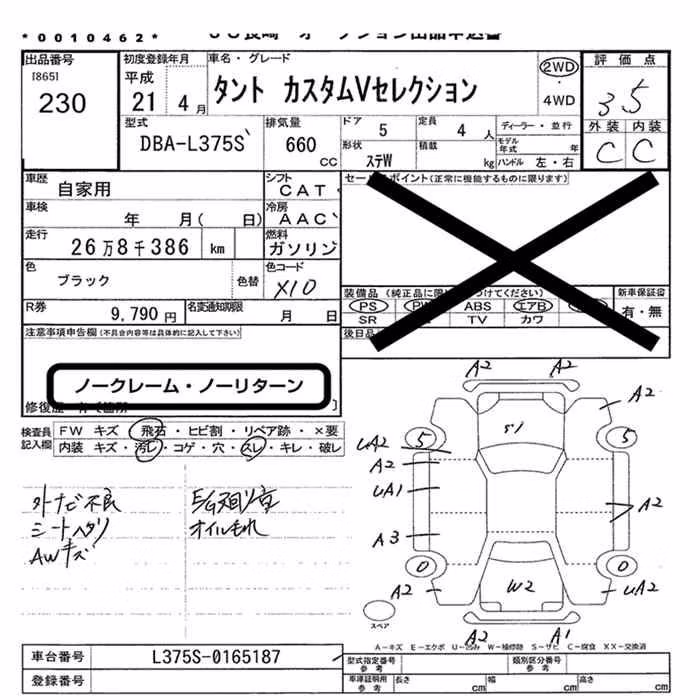 *0010462*
出品番号
[865]
230
初度登録年月
平成
21 4 月
車名・グレード
タント カスタムVセレクション
2WD
・
4WD
評価点
3.5
外装 内装
C C
型式
DBA-L375S
排気量
660
CC
ドア
5
定員
4 人
ディーラー・並行
形状
ステW
積載
kg
モデル
年式
年
ハンドル 左・右
車歴
自家用
シフト
CAT
セールスポイント(正常に機能するものに限ります)
車検
年 月( 日)
冷房
AAC
走行
26万8千386 km
燃料
ガソリン
色
ブラック
色替
色コード
X10
装備品
新車保証書
PS ABS エアB
有・無
SR TV カワ
後日品
R券
9,790 円
名変通知期限
月 日
注意事項申告欄(不具合内容等は具体的に記入して下さい)
ノークレーム・ノーリターン
検査員
記入欄
FW キズ 飛石・ヒビ割・リペア跡・×要
内装 キズ・汚レ・コゲ・穴・スレ・キレ・破レ
外ナビ不良
シートヘタリ
AWキズ
オイルもれ
A2 A2
A2
S1
5 5
UA2
A2
UA1
A2
A3
0 0
A2
W2
UA2
A2 A1
スペア
A-キズ E-エクボ U-凹み W-補修跡 S-サビ C-腐食 XX-交換済
車台番号
L375S-0165187
登録番号
型式指定番号
参考
類別区分番号
参考
車庫証明用
参考
長さ cm
幅 cm
高さ cm